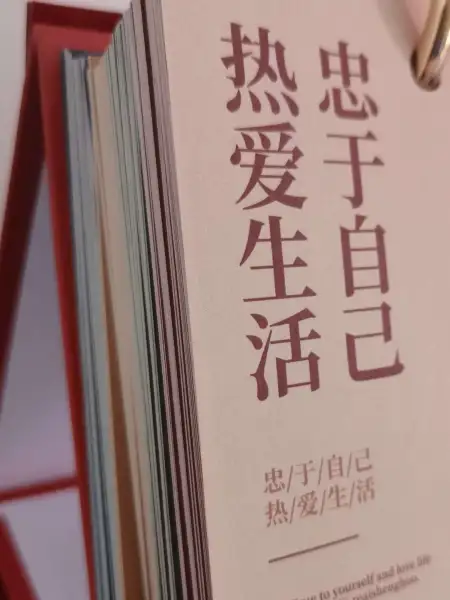 忠于自己
热爱生活
忠/于/自/己
热/爱/生/活
to yourself and love life